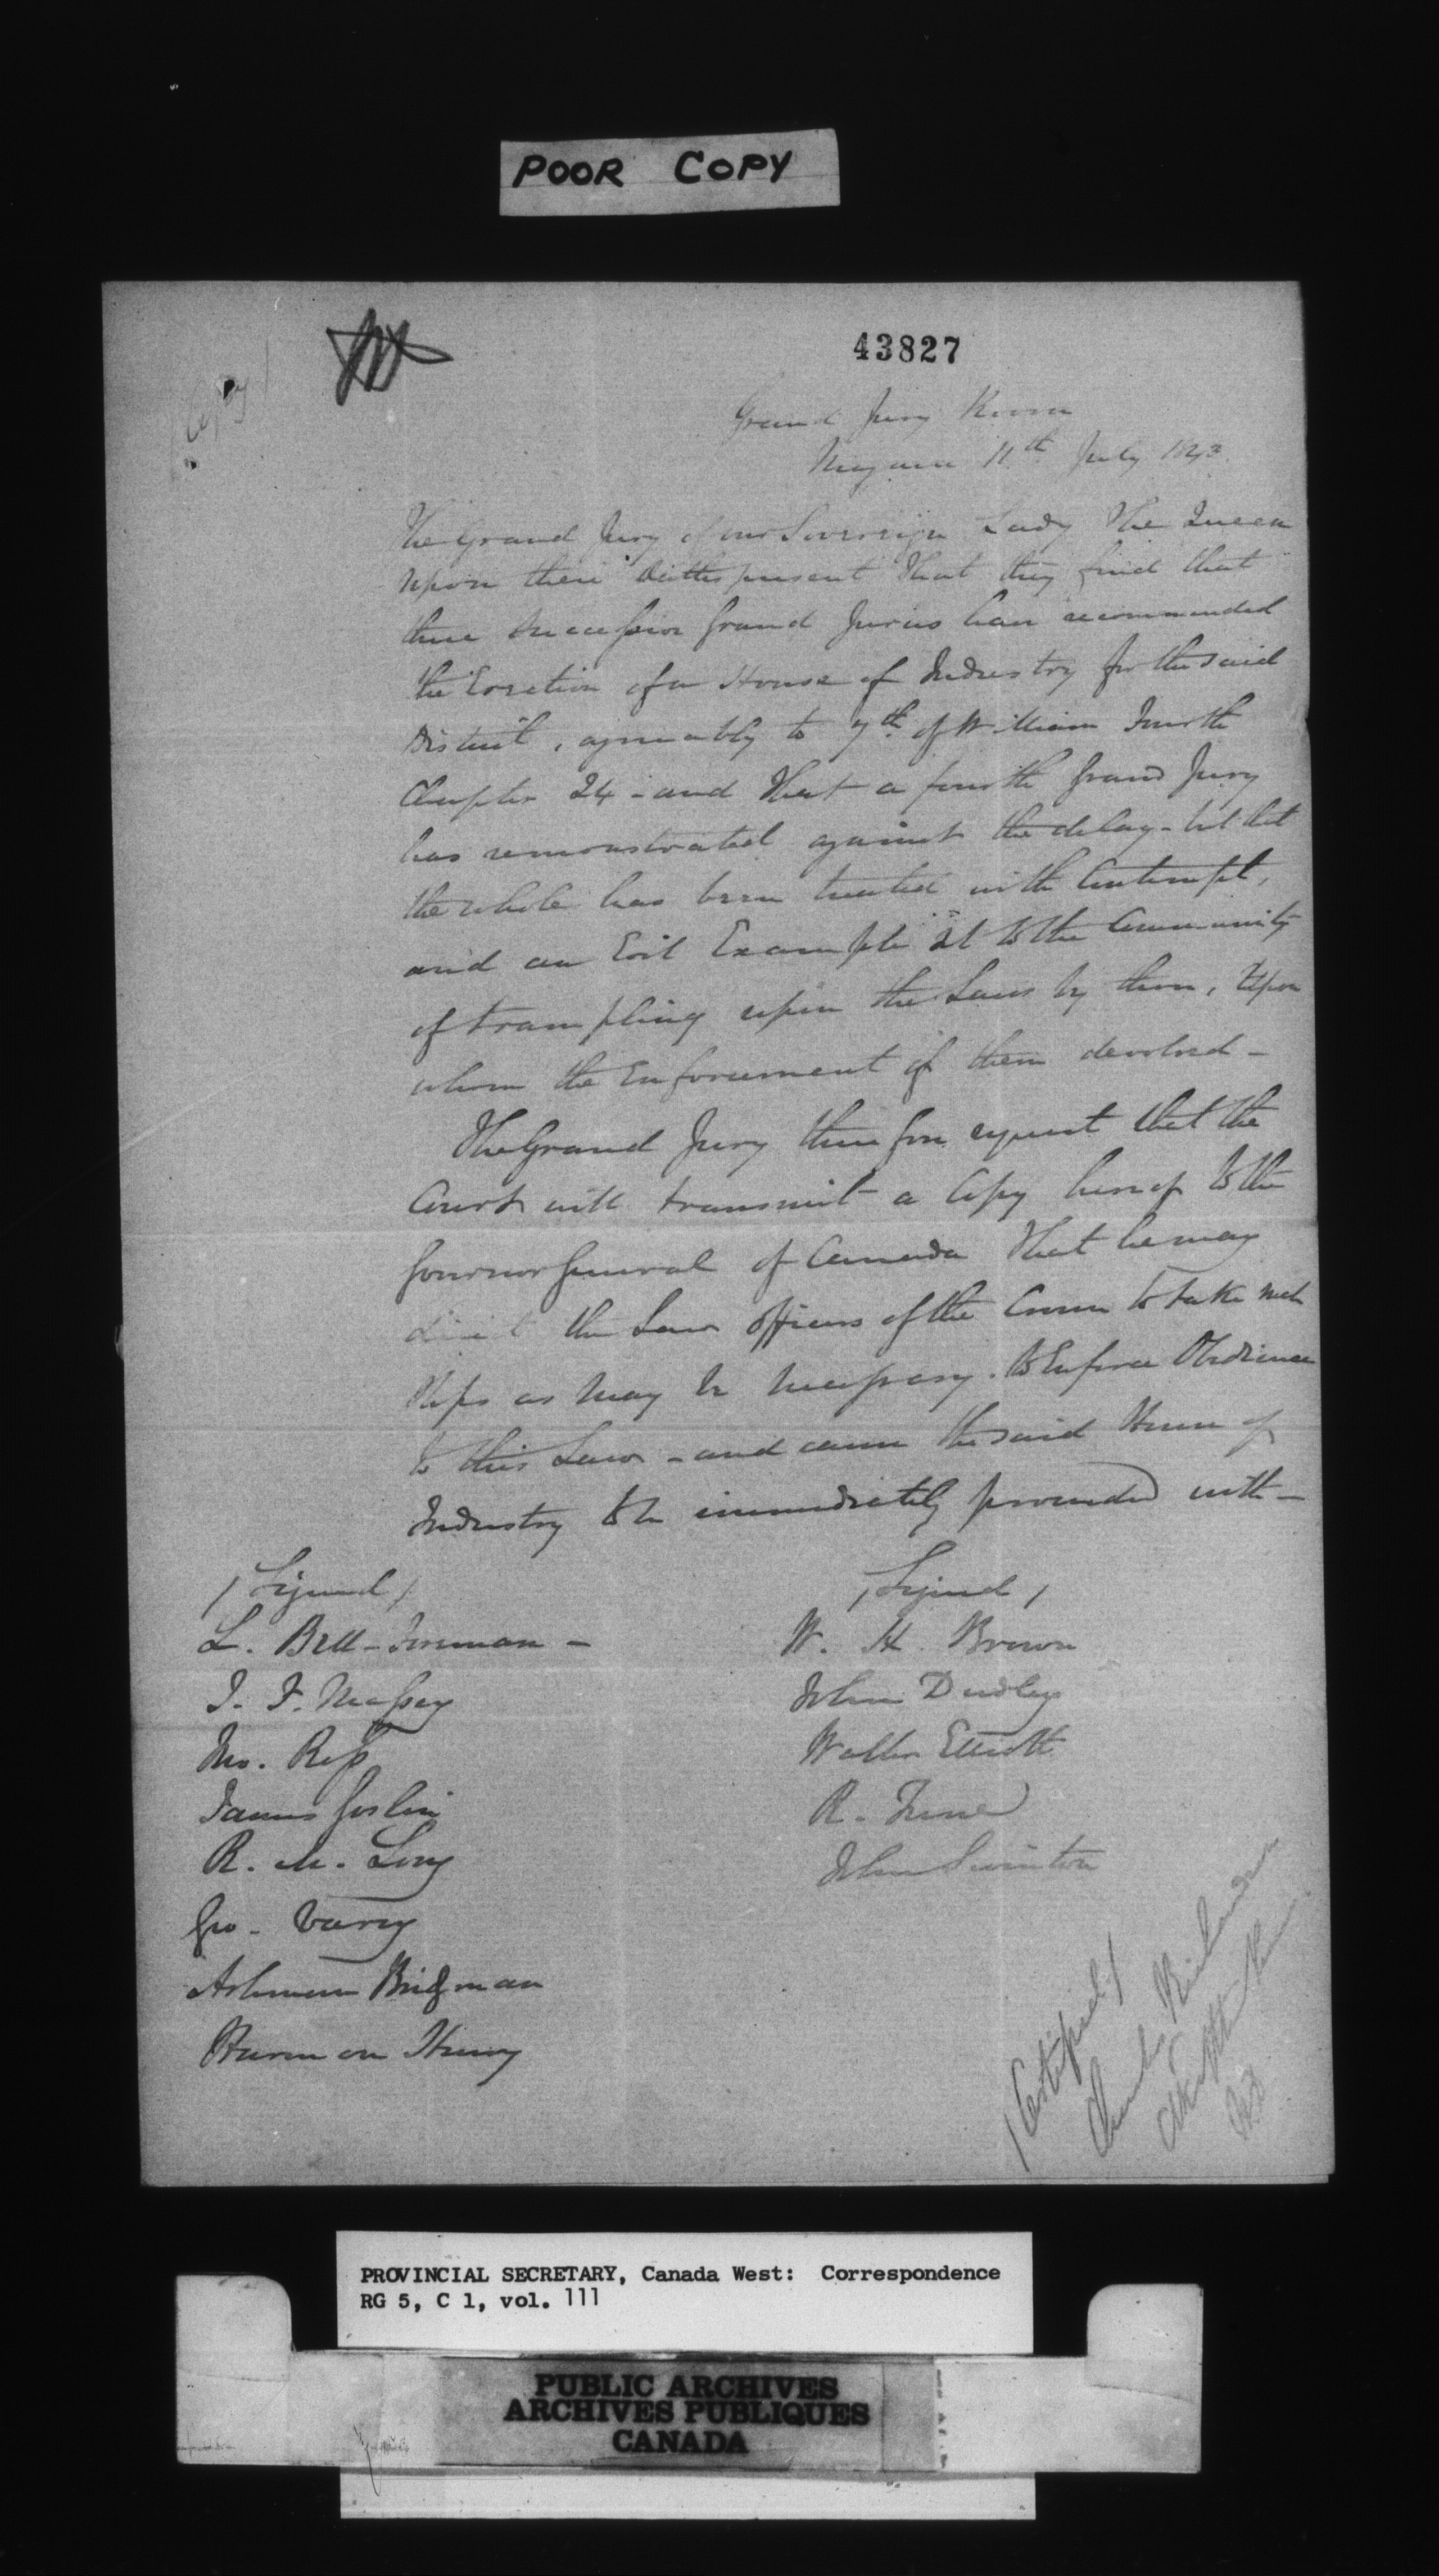 POOR COPY
43827
Copy
Grand Jury Room
Niagara 11th July 1843.
The Grand Jury of our Sovereign Lady the Queen
upon their Oaths present that they find that
three successive Grand Juries have recommended
the Erection of a House of Industry for the said
District, agreeably to 7th of William Fourth
Chapter 24 - and that a fourth Grand Jury
has remonstrated against the delay - but that
the whole has been treated with Contempt,
and an Evil Example set to the Community
of trampling upon the Laws by them, Upon
whom the Enforcement of them devolved -
The Grand Jury therefore request that the
Court will transmit a Copy hereof to the
Governor General of Canada that he may
direct the Law Officers of the Crown to take such
steps as may be necessary. to Enforce Obedience
to this Law - and cause the said House of
Industry to be immediately proceeded with -
/Signed/
L. Bell - Foreman -
I. F. Massey
Jno. Ross
James Joslin
R. M. Long
Geo. Varey
Bridgman
Harmon Henry
/Signed/
W. H Brown
John Dudley
Walter Elliott
R.
John Swinton
/Certified/
Charles Richardson
PROVINCIAL SECRETARY, Canada West: Correspondence
RG 5, C 1, vol. 111
PUBLIC ARCHIVES
ARCHIVES PUBLIQUES
CANADA